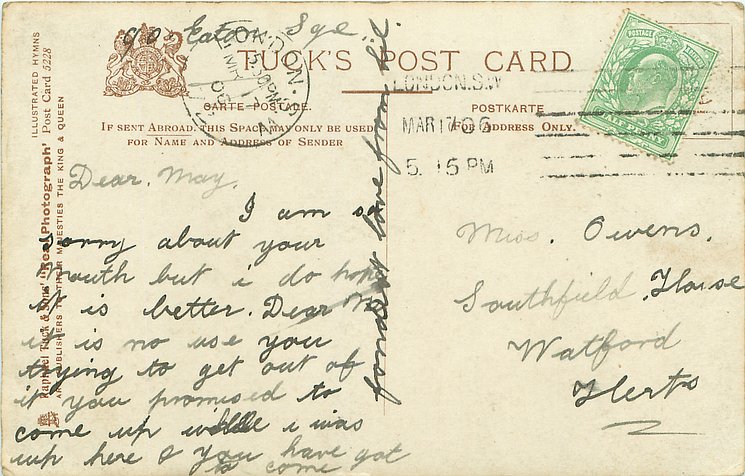 90 Eaton Sqe
TUCK'S POST CARD
CARTE POSTALE.
POSTKARTE
IF SENT ABROAD, THIS SPACE MAY ONLY BE USED
FOR NAME AND ADDRESS OF SENDER
FOR ADDRESS ONLY.
LONDON.S.W
MAR 17 06
5. 15 PM
LONDON. S.
5.30 PM
MR 17
06
POSTAGE
ILLUSTRATED HYMNS
Raphael Tuck & Sons' "Real Photograph" Post Card 5228
ART PUBLISHERS TO THEIR MAJESTIES THE KING & QUEEN
Dear. May.
I am so
sorry about your
mouth but i do hope
it is better. Dear
it is no use you
trying to get out of
it you promised to
come up while i was
up here & you have got
to come
fondest love from
Miss. Owens.
Southfield House
Watford
Herts